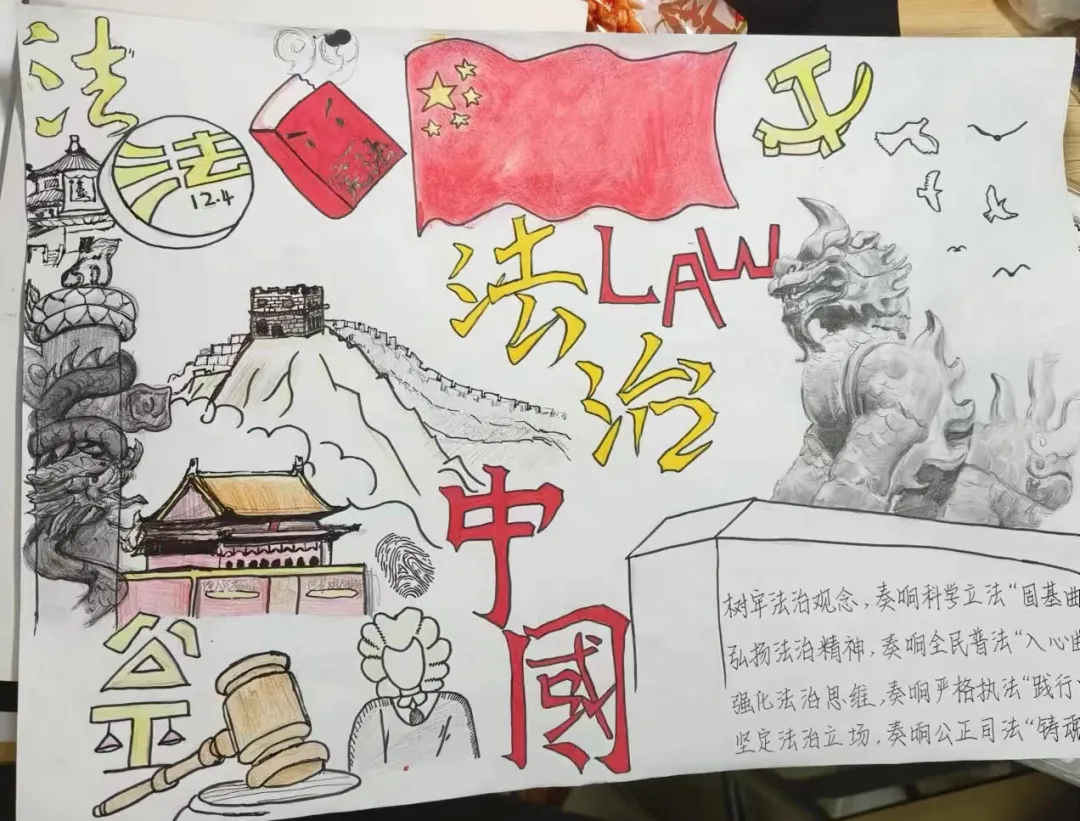 法
法
12.4
法 LAW
治
中
國
公
平
树牢法治观念，奏响科学立法“固基曲
弘扬法治精神，奏响全民普法“入心曲
强化法治思维，奏响严格执法“践行
坚定法治立场，奏响公正司法“铸魂